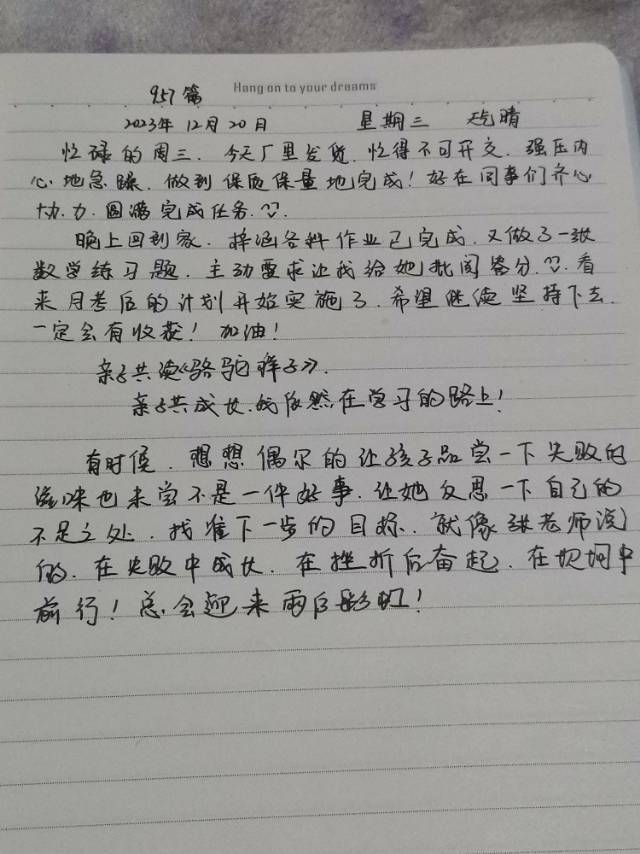 957篇
Hang on to your dreams
2023年12月20日 星期三 天气晴
忙碌的周三.今天厂里发货,忙得不可开交.强压内
心地急躁.做到保质保量地完成!好在同事们齐心
协力.圆满完成任务.
晚上回到家.梓涵各科作业已完成.又做了一张
数学练习题.主动要求让我给她批阅答分.看
来月考后的计划开始实施了.希望继续坚持下去.
一定会有收获!加油!
亲子共读《骆驼祥子》.
亲子共成长.我依然在学习的路上!
有时候.想想偶尔的让孩子品尝一下失败的
滋味也未尝不是一件好事.让她反思一下自己的
不足之处.找准下一步的目标.就像张老师说
的.在失败中成长.在挫折后奋起.在坎坷中
前行!总会迎来雨后彩虹!